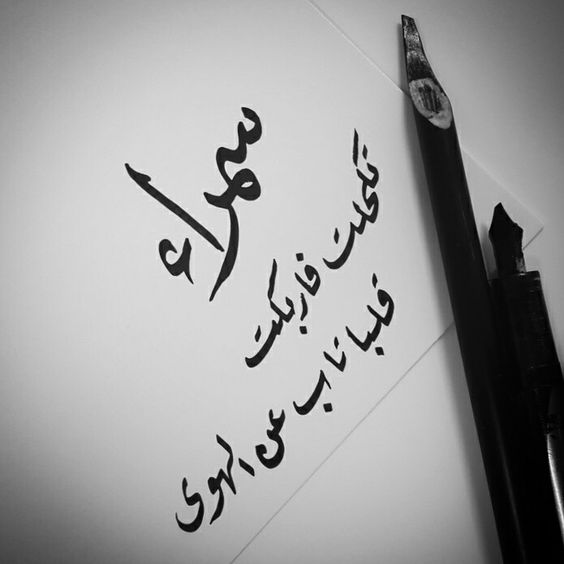 سمراء
تكحلت فاربكت
قلبا تاب عن الهوى